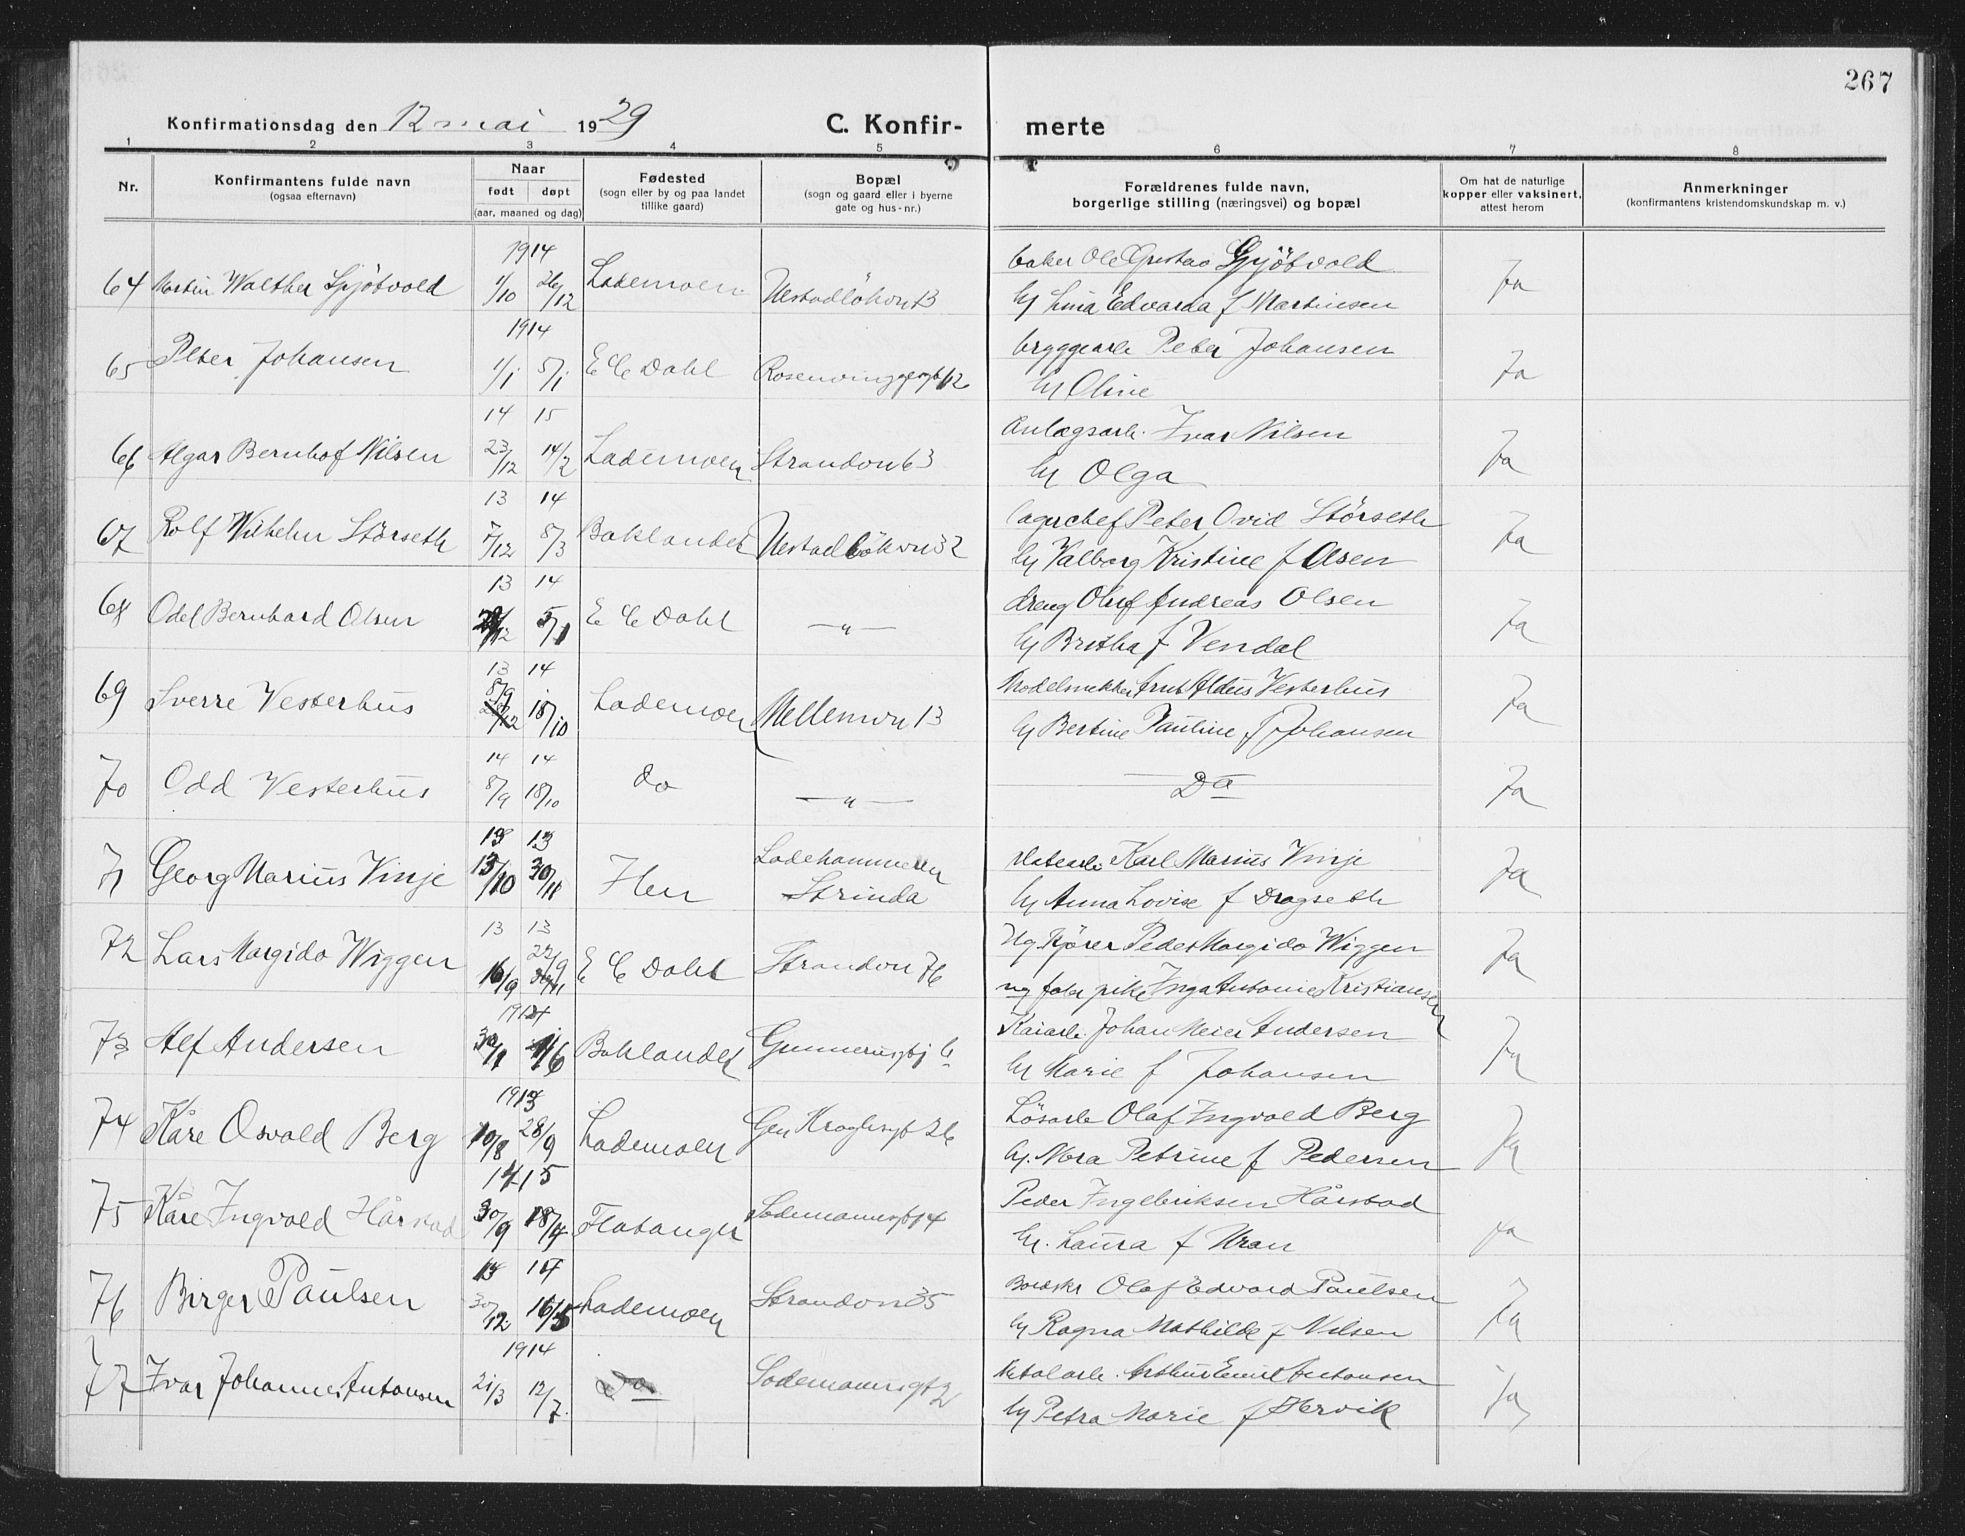 267
Konfirmationsdag den 12 mai 1929 C. Konfir- merte
1 2 3 4 5 6 7 8
Nr. Konfirmantens fulde navn (ogsaa efternavn) Naar født døpt (aar, maaned og dag) Fødested (sogn eller by og paa landet tillike gaard) Bopæl (sogn og gaard eller i byerne gate og hus-nr.) Forældrenes fulde navn, borgerlige stilling (næringsvei) og bopæl Om hat de naturlige kopper eller vaksinert, attest herom Anmerkninger (konfirmantens kristendomskundskap m. v.)
1914 baker Ole Gustav Gjötvold
64 Martin Walther Gjötvold 1/10 26/12 Lademoen 13 Ja
Lina Edvarda f Martinsen
1914 bryggearb Peter Johansen
65 Peter Johansen 1/1 5/1 E C Dahl 12 Ja
Oline
14 15 Anlægsarb. Ivar Nilsen
66 Algar Bernhof Nilsen 23/12 14/2 Lademoen Strandvn 63 Ja
Olga
13 14 lagerchef Peter Ovid Störseth
67 Rolf Wilhelm Störseth 7/12 8/3 Baklandet 32 Ja
Valborg Kristine f Olsen
13 14 dreng Oluf Andreas Olsen
68 Odel Bernhard Olsen 5/1 E C Dahl -"- Ja
f Vendal
13 14 Modelsnekker Vesterhus
69 Sverre Vesterhus 8/9 18/10 Lademoen Mellemvn 13 Ja
Bertine Pauline f Johansen
14 14
70 Odd Vesterhus 8/9 18/10 do -"- Do Ja
13 13 Ladehammeren Karl Marius Vinje
71 Georg Marius Vinje 13/10 30/11 Hen Strinda Ja
Anna Lovise f Dragseth
13 13 Ug Kjörer Peder Margido Wiggen
72 Lars Margido Wiggen 16/9 22/9 E C Dahl Strandvn 76 Ja
ug fabr pike Inga Antonie Kristiansen
1914 Kaiarb. Johan Meier Andersen
73 Alf Andersen 1/6 Baklandet Ja
Marie f Johansen
1913 Lösarb Olaf Ingvald Berg
74 Kåre Osvald Berg 10/8 28/9 Lademoen Gen Kroghsgt 26 Ja
Nora Petrine f Pedersen
14 15 Peder Ingebriksen Hårstad
75 Kåre Ingvald Hårstad 30/9 18/4 Flatanger Lademannsgt 4 Ja
Laura f Uran
13 14 Olaf Edvard Paulsen
76 Birger Paulsen 30/12 16/5 Lademoen Strandvn 35 Ja
Ragna Mathilde f Nilsen
1914 Metalarb. Arthur Emil Antonsen
77 Ivar Johannes Antonsen 21/3 12/7 Do Ja
Petra Marie f Hervik